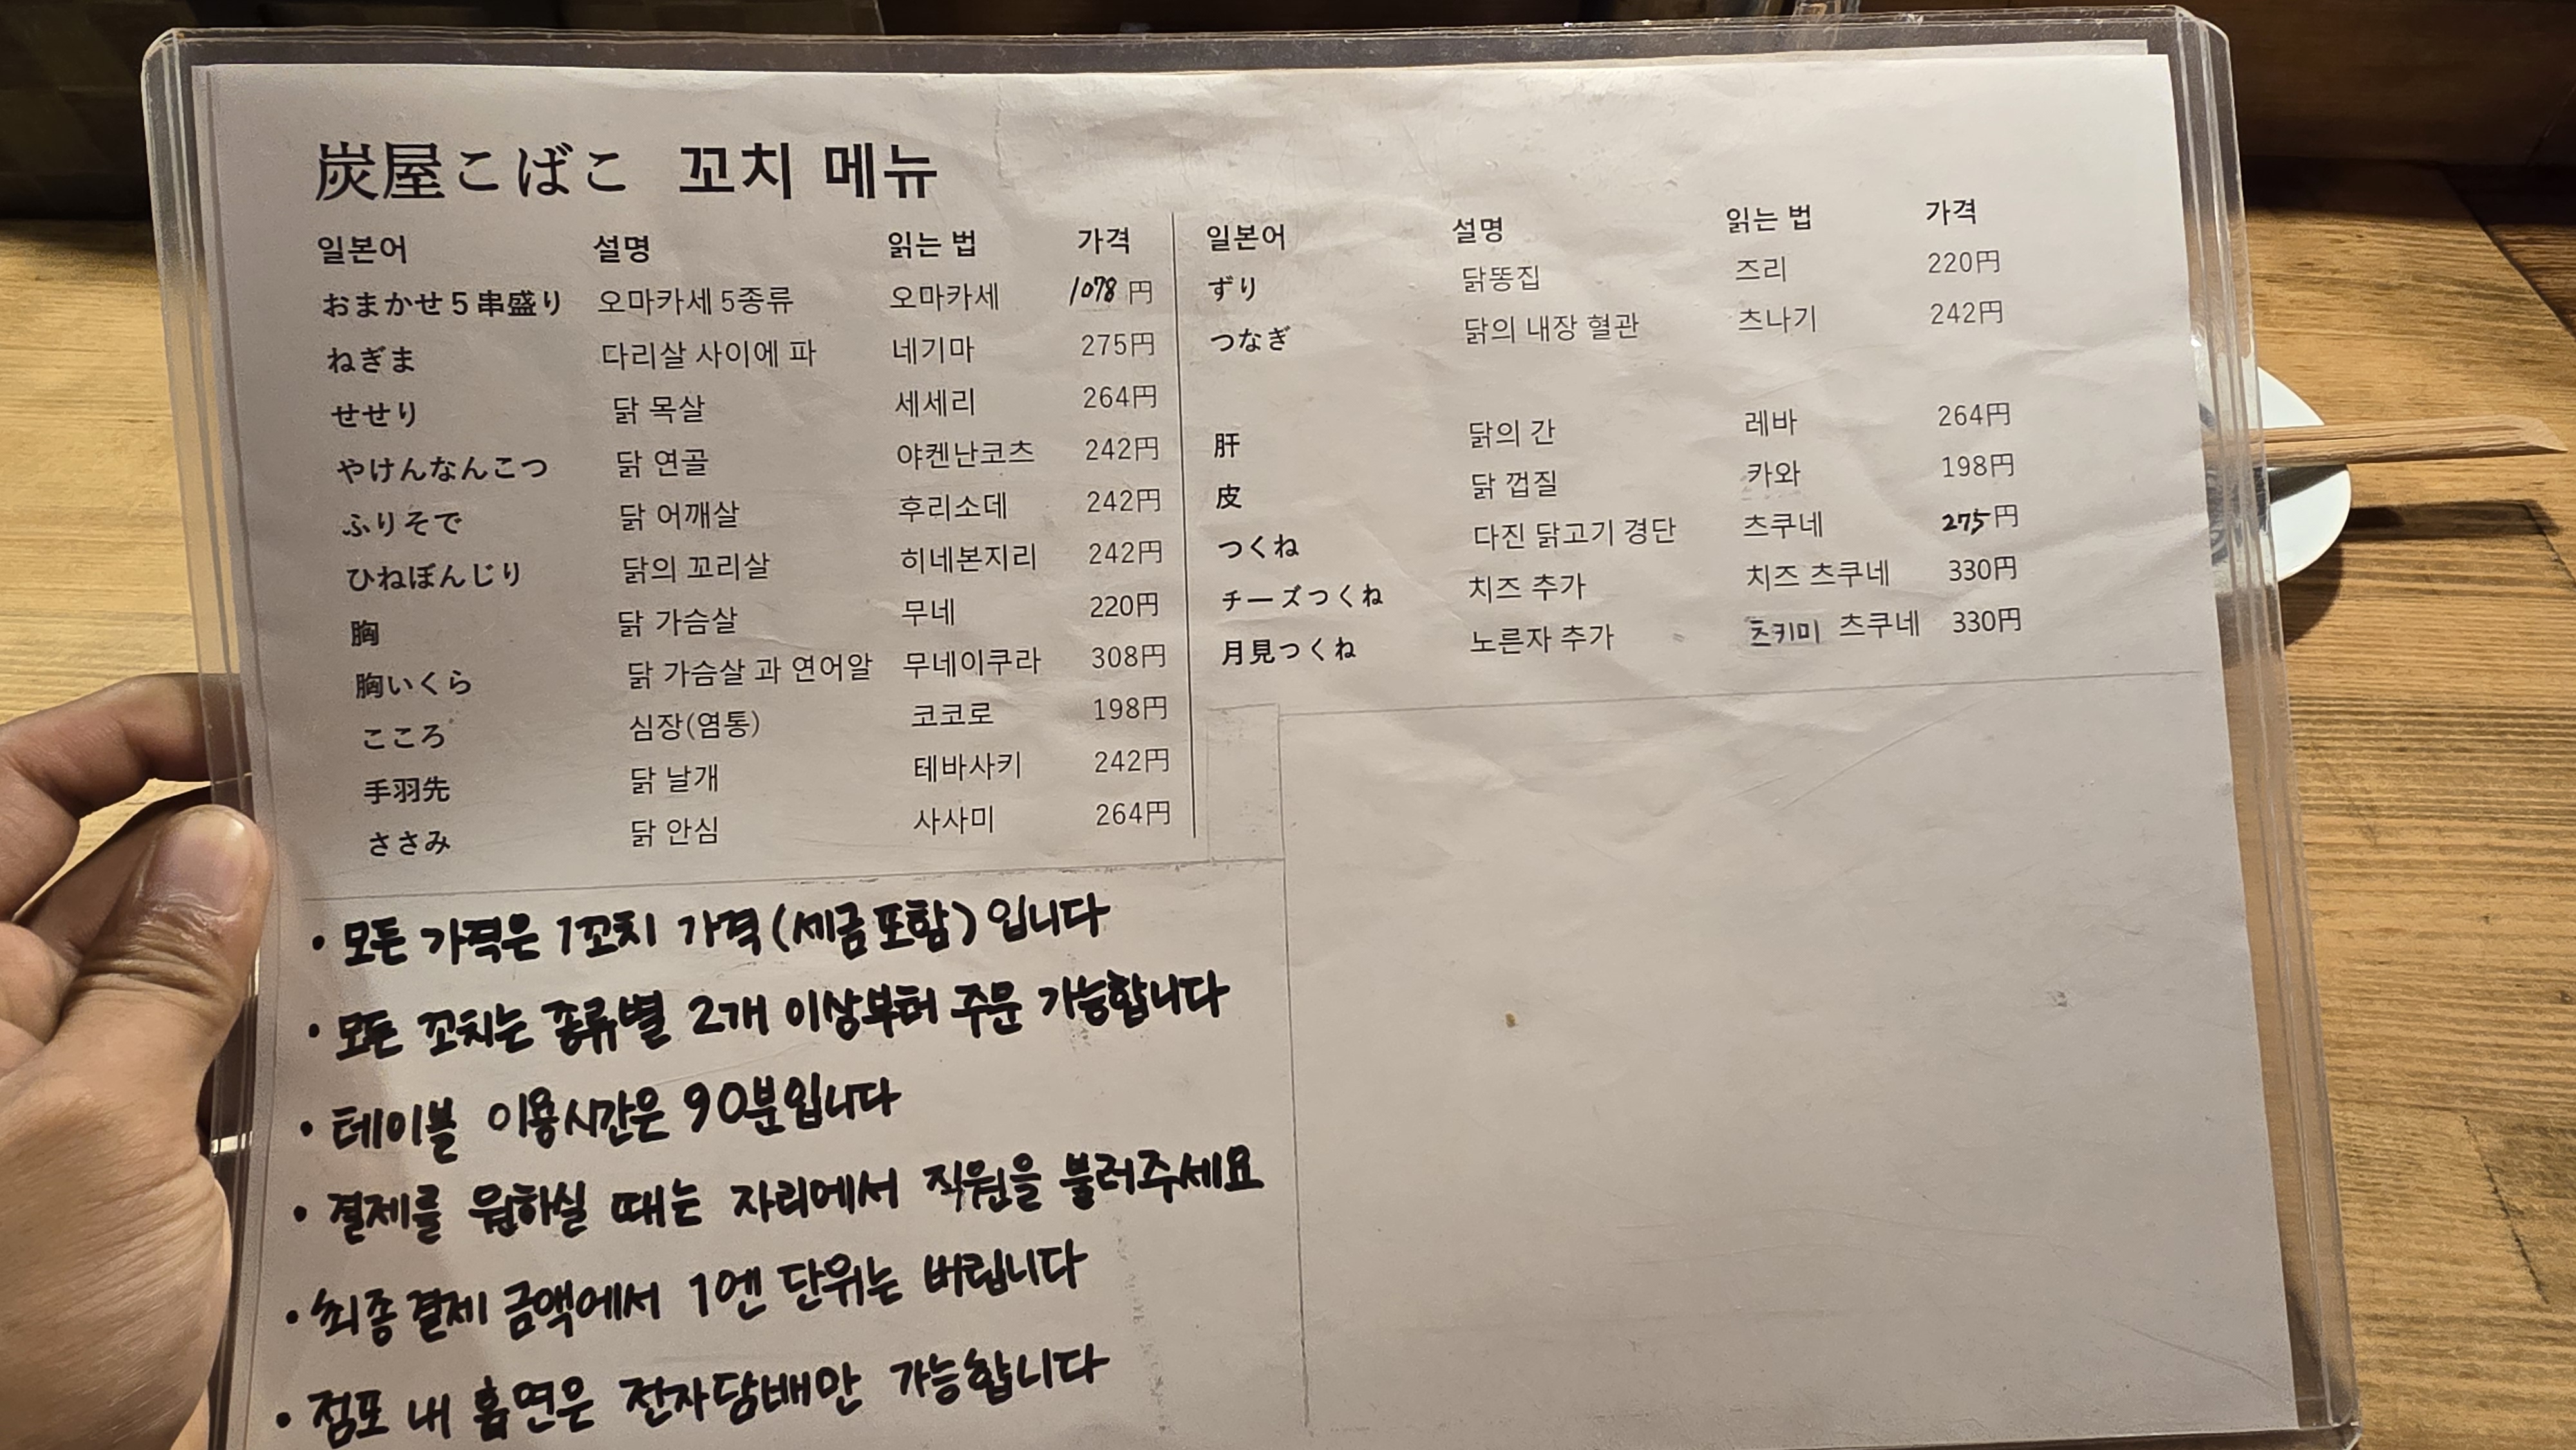 炭屋こばこ 꼬치 메뉴
일본어 설명 읽는 법 가격
おまかせ5串盛り 오마카세 5종류 오마카세 1078 円
ねぎま 다리살 사이에 파 네기마 275円
せせり 닭 목살 세세리 264円
やけんなんこつ 닭 연골 야켄난코츠 242円
ふりそで 닭 어깨살 후리소데 242円
ひねぼんじり 닭의 꼬리살 히네본지리 242円
胸 닭 가슴살 무네 220円
胸いくら 닭 가슴살 과 연어알 무네이쿠라 308円
こころ 심장(염통) 코코로 198円
手羽先 닭 날개 테바사키 242円
ささみ 닭 안심 사사미 264円
일본어 설명 읽는 법 가격
ずり 닭똥집 즈리 220円
つなぎ 닭의 내장 혈관 츠나기 242円
肝 닭의 간 레바 264円
皮 닭 껍질 카와 198円
つくね 다진 닭고기 경단 츠쿠네 275円
チーズつくね 치즈 추가 치즈 츠쿠네 330円
月見つくね 노른자 추가 츠키미 츠쿠네 330円
• 모든 가격은 1꼬치 가격(세금포함)입니다
• 모든 꼬치는 종류별 2개 이상부터 주문 가능합니다
• 테이블 이용시간은 90분입니다
• 결제를 원하실 때는 자리에서 직원을 불러주세요
• 최종결제 금액에서 1엔 단위는 버립니다
• 점포 내 흡연은 전자담배만 가능합니다